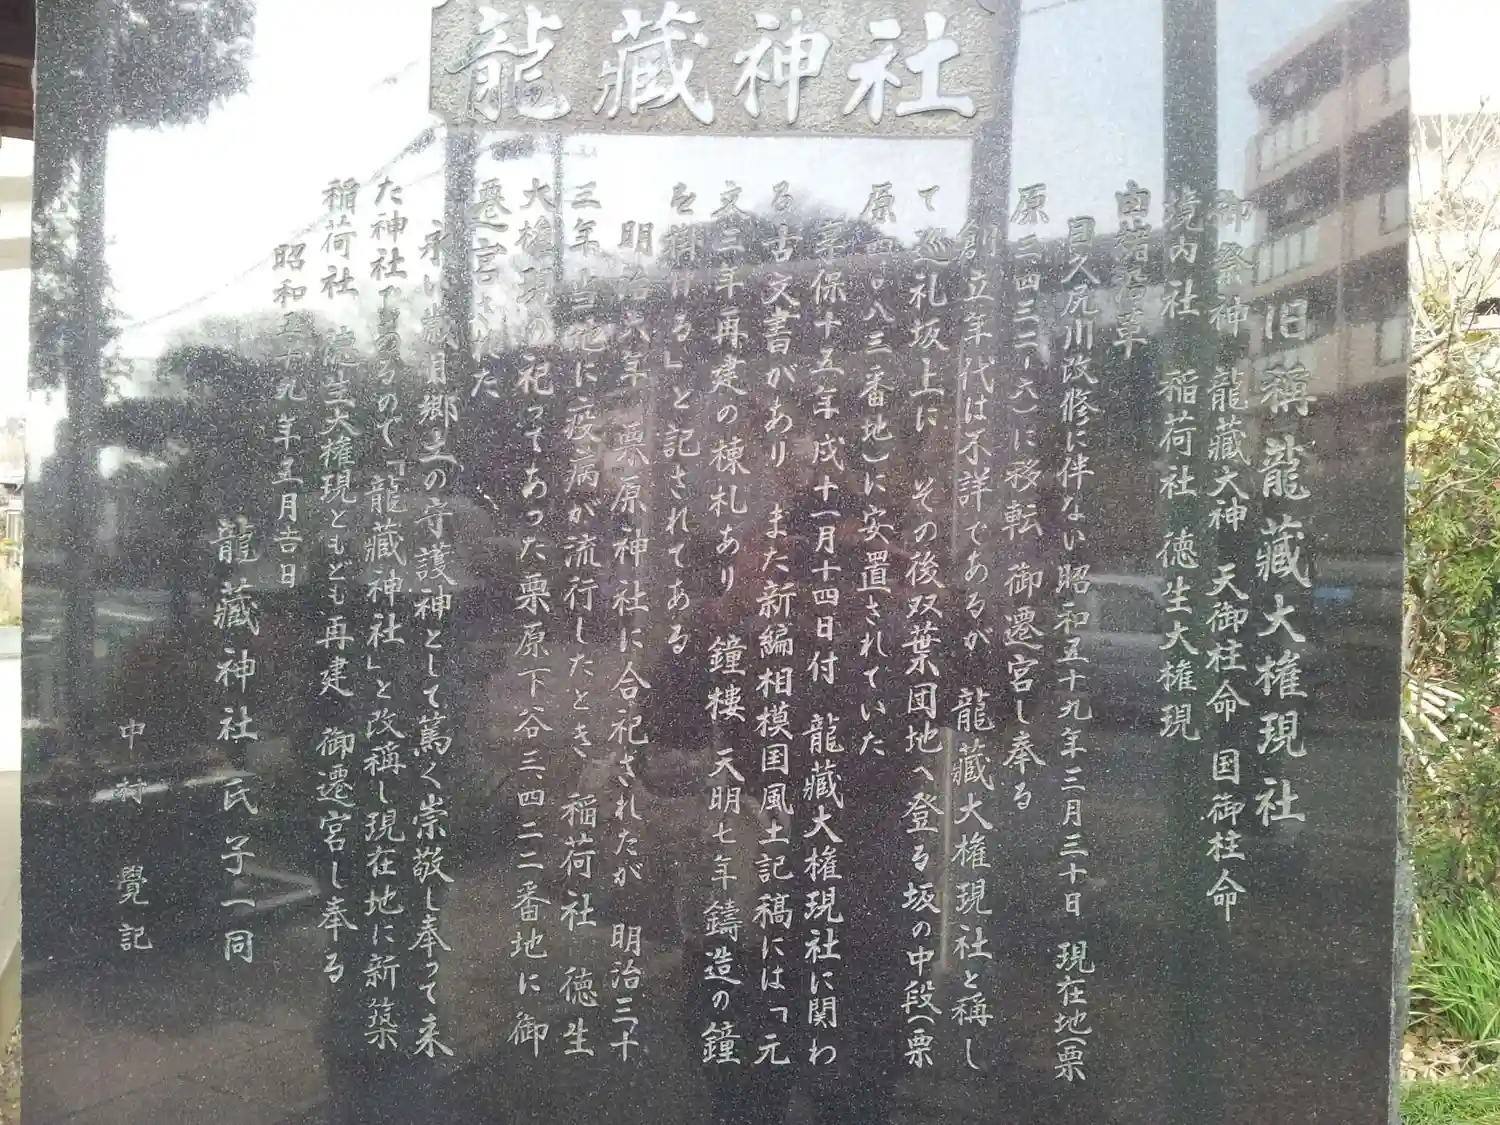 龍藏神社
旧称龍藏大権現社
御祭神 龍藏大神 天御柱命 国御柱命
境内社 稲荷社 徳生大権現
由緒沿革
目久尻川改修に伴ない昭和五十九年三月三十日 現在地(栗
原三四三二-六)に移転 御遷宮し奉る
創立年代は不詳であるが 龍藏大権現社と称し
て巡礼坂上に その後双葉団地へ登る坂の中段(栗
原四〇八三番地)に安置されていた
享保十五年戌十一月十四日付 龍藏大権現社に関わ
る古文書があり また新編相模国風土記稿には「元
文三年再建の棟札あり 鐘楼 天明七年鋳造の鐘
を掛ける」と記されてある
明治六年 栗原神社に合祀されたが 明治三十
三年当地に疫病が流行したとき 稲荷社 徳生
大権現の祀ってあった栗原下谷三、四二二番地に御
遷宮された
永い歳月郷土の守護神として篤く崇敬し奉って来
た神社であるので「龍藏神社」と改称し現在地に新築
稲荷社 徳生大権現ともども再建 御遷宮し奉る
昭和五十九年五月吉日
龍藏神社氏子一同
中村 覺記